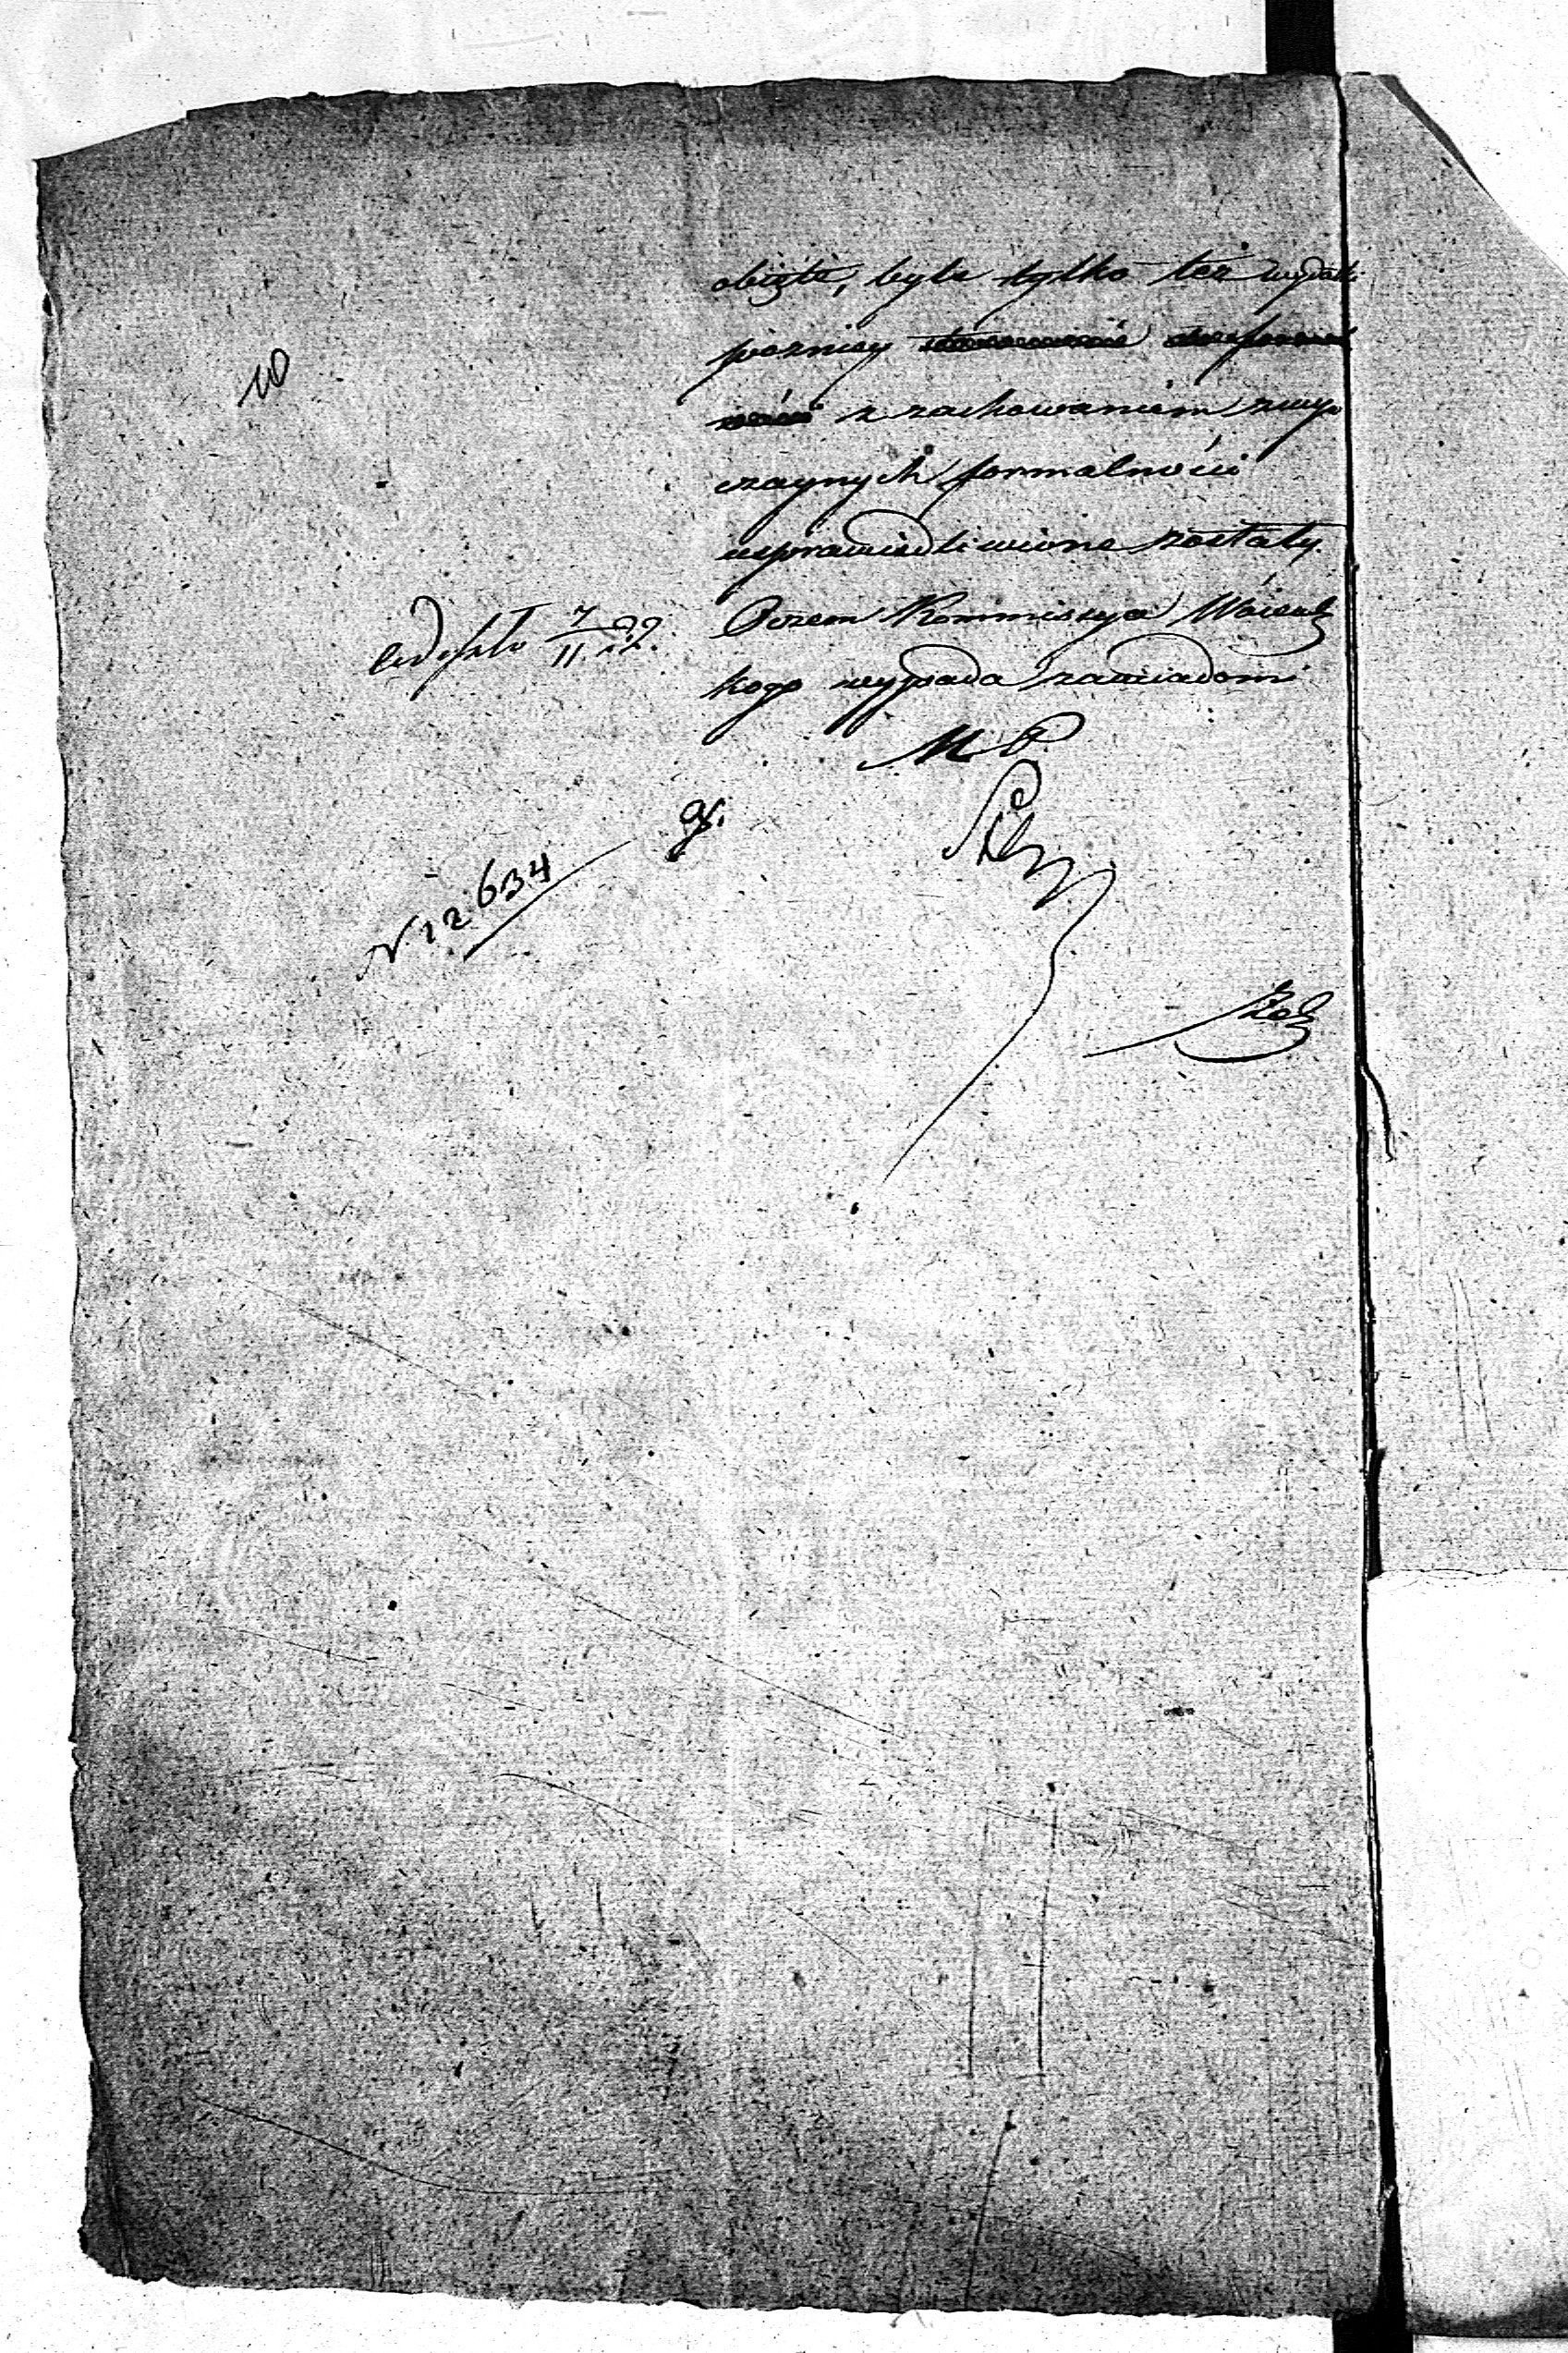 10
obięte, byle tylko też wydatki
poźniey
z zachowaniem zwy
czaynych formalności
usprawiedliwione zostały.
O czem Kommissya Woiewodz
kogo wypada zawiadomi
odesłało 7/11 22.
M P
N. 12634